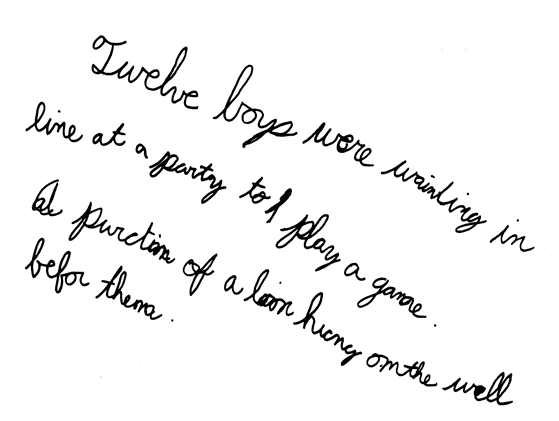 Twelve boys were wainting in
line at a party to play a game.
A purction of a lion hung on the well
befor thema.